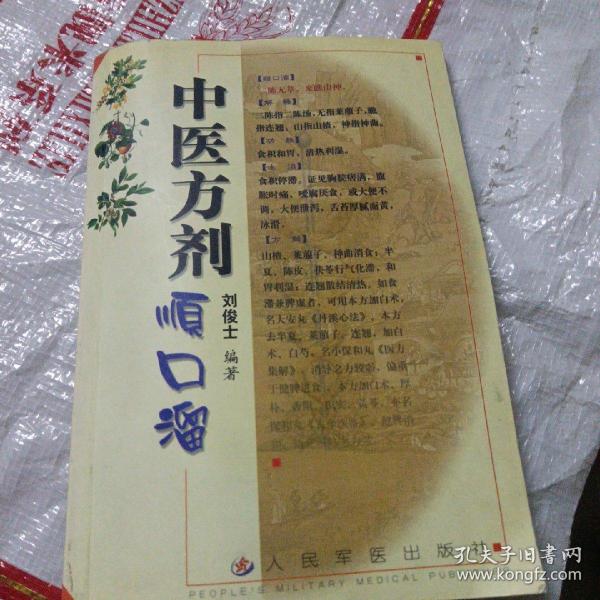 中医方剂
順口溜
刘俊士 编著
【顺口溜】
二陈无翠，来瞧山神。
【解释】
二陈指二陈汤，无指莱菔子，瞧
指连翘、山指山楂，神指神曲。
【功效】
食积和胃，清热利湿。
【主治】
食积停滞，证见胸脘痞满，腹
胀时痛，嗳腐厌食，或大便不
调，大便泄泻，舌苔厚腻而黄，
脉滑。
【方解】
山楂、莱菔子、神曲消食；半
夏、陈皮、茯苓行气化滞，和
胃利湿；连翘散结清热。如食
滞兼脾虚者，可用本方加白术，
名大安丸《丹溪心法》，本方
去半夏、莱菔子、连翘，加白
术、白芍，名小保和丸《医方
集解》，消导之力较弱，偏重
于健脾进食；本方加白术、厚
朴、香附、枳实、黄芩、
人民军医出版社
PEOPLE'S MILITARY MEDICAL PU
孔夫子旧书网
www.kongfz.com